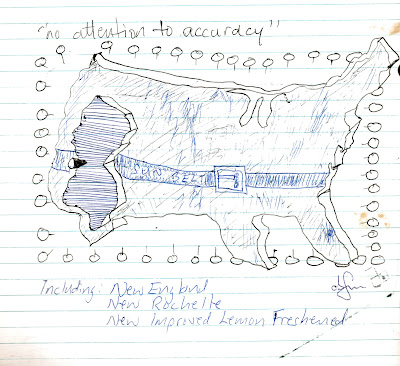 "no attention to accuracy"
SUN BELT
Including: New England
New Rochelle
New Improved Lemon Freshened